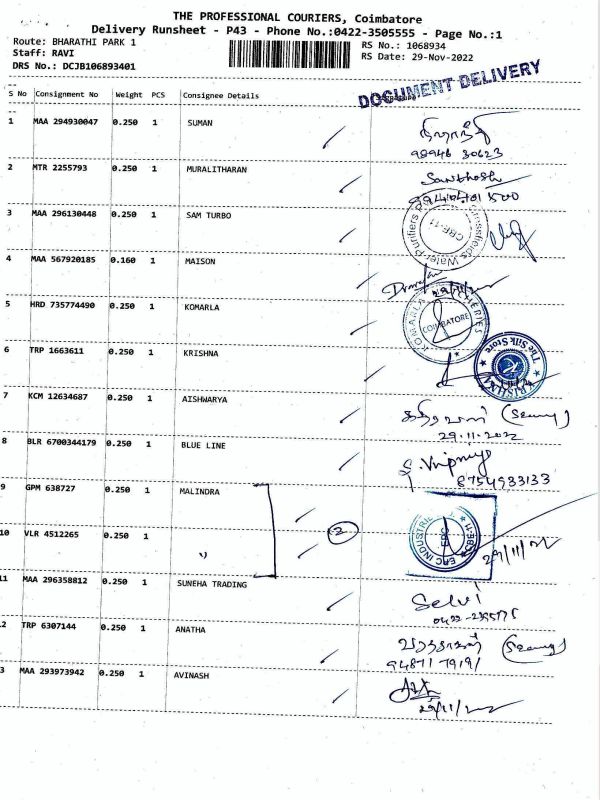 THE PROFESSIONAL COURIERS, Coimbatore
Delivery Runsheet - P43 - Phone No.:0422-3505555 - Page No.:1
Route: BHARATHI PARK 1
RS No.: 1068934
Staff: RAVI
RS Date: 29-Nov-2022
DRS No.: DCJB106893401
DOCUMENT DELIVERY
S No Consignment No Weight PCS Consignee Details
1 MAA 294930047 0.250 1 SUMAN
98946 30623
2 MTR 2255793 0.250 1 MURALITHARAN
Santhosh
3 MAA 296130448 0.250 1 SAM TURBO
Water-Purifiers
CBE-11
4 MAA 567920185 0.160 1 MAISON
5 HRD 735774490 0.250 1 KOMARLA
KOMARLA
COIMBATORE
6 TRP 1663611 0.250 1 KRISHNA
The Silk Store
7 KCM 12634687 0.250 1 AISHWARYA
29.11.2022
8 BLR 6700344179 0.250 1 BLUE LINE
8754933133
9 GPM 638727 0.250 1 MALINDRA
2
EPC INDUSTRIE
EPC
CBE-11
10 VLR 4512265 0.250 1 "
29/11/22
11 MAA 296358812 0.250 1 SUNEHA TRADING
Selvi
2 TRP 6307144 0.250 1 ANATHA
94871 79191
3 MAA 293973942 0.250 1 AVINASH